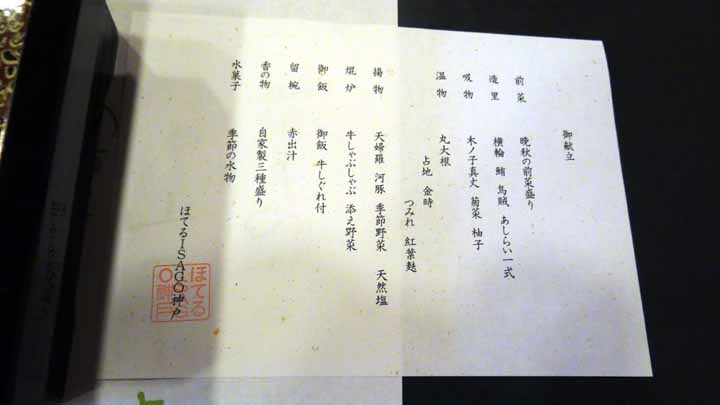 御献立
前菜 晩秋の前菜盛り
造里 横輪 鮪 烏賊 あしらい一式
吸物 木ノ子真丈 菊菜 柚子
温物 丸大根
占地 金時
つみれ 紅葉麩
揚物 天婦羅 河豚 季節野菜 天然塩
焜炉 牛しゃぶしゃぶ 添え野菜
御飯 御飯 牛しぐれ付
留椀 赤出汁
香の物 自家製三種盛り
水菓子 季節の水物
ほてるISAGO神戸
ほてる